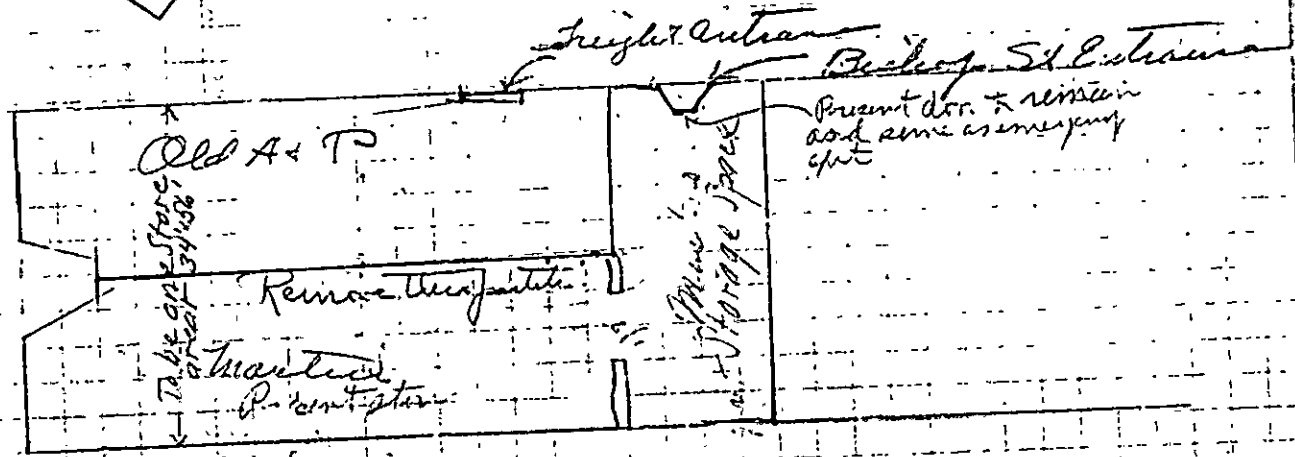 Freight Entran
Bishop St Entrance
Present door to remain
and serve as emergency
exit
Old A & P
To be one Store
area 34'x56'
Remove this partition
Storage Space
Martin's
Present store